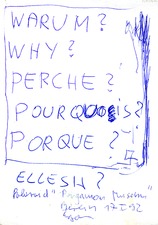 WARUM?
WHY?
PERCHE?
POURQUOIS?
PORQUE?
ELLESIN?
"Pergamon Museum"
Berlin 17.I.92